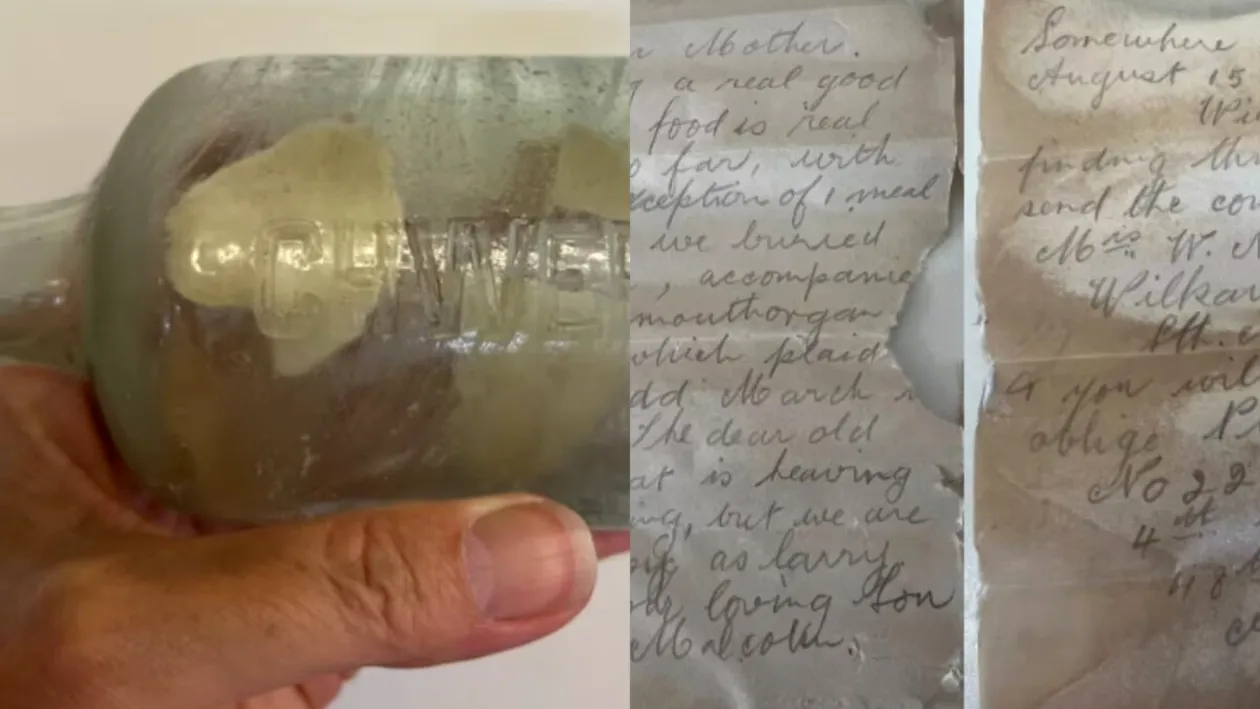 CHWE
Mother.
a real good
food is real
far, with
ception of 1 meal
we buried
, accompanie
mouthorgan
which plaid
March
The dear old
at is heaving
ing, but we are
as larry
loving Son
Malcolm.
Somewhere
August 15
finding thi
send the
Mrs W.
Wilkaw
Sth.
& you wil
oblige P
No 22
4
48